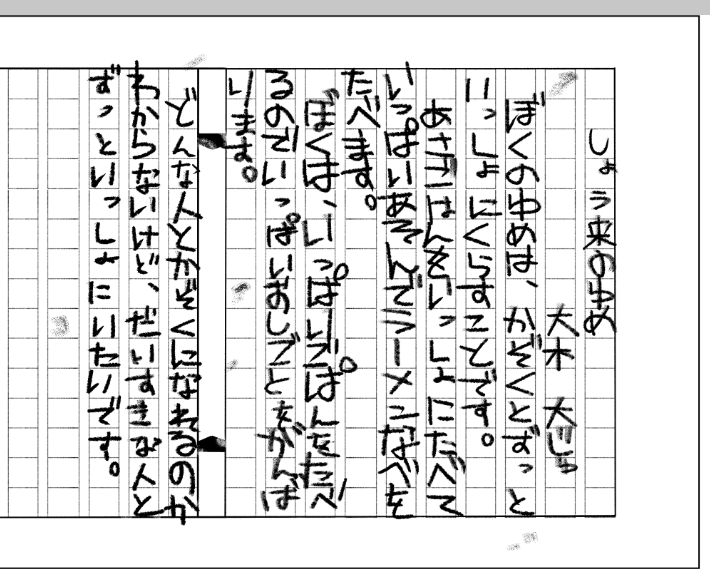 しょう来のゆめ
大木 大じゅ
ぼくのゆめは、かぞくとずっと
いっしょにくらすことです。
あさごはんをいっしょにたべて
いっぱいあそんでラーメンなべを
たべます。
ぼくは、いっぱいごはんをたべ
るのでいっぱいおしごとをがんば
ります。
どんな人とかぞくになれるのか
わからないけど、だいすきな人と
ずっといっしょにいたいです。